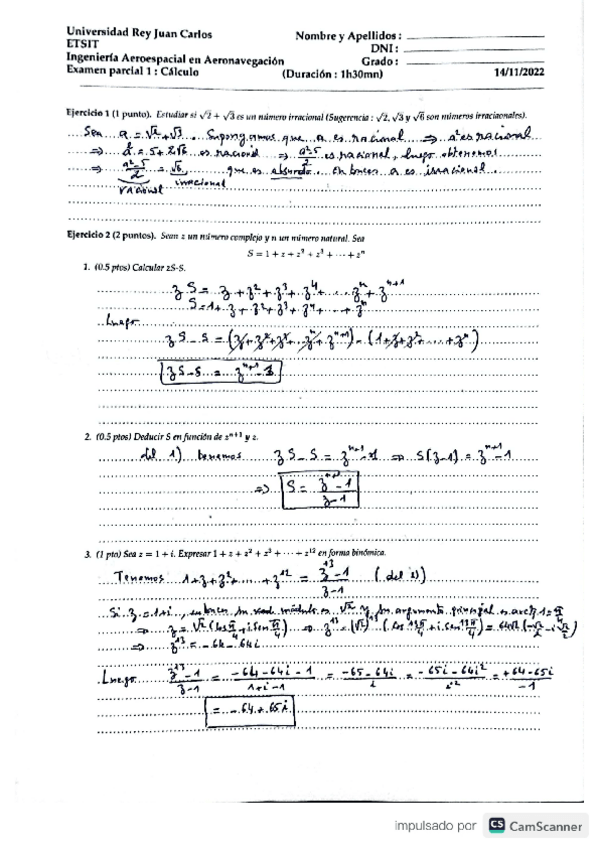 Universidad Rey Juan Carlos
ETSIT
Ingeniería Aeroespacial en Aeronavegación
Examen parcial 1 : Cálculo
Nombre y Apellidos :
DNI :
Grado :
(Duración : 1h30mn)
14/11/2022
Ejercicio 1 (1 punto). Estudiar si √2 + √3 es un número irracional (Sugerencia : √2, √3 y √6 son números irracionales).
Sea a = √2 + √3. Supongamos que a es racional ⇒ a² es racional
⇒ a² = 5 + 2√6 es racional ⇒ (a²-5)/2 es racional, luego obtenemos
⇒ (a²-5)/2 = √6 que es absurdo. Entonces a es irracional.
racional irracional
Ejercicio 2 (2 puntos). Sean z un número complejo y n un número natural. Sea
S = 1 + z + z² + z³ + ··· + zⁿ
1. (0.5 ptos) Calcular zS-S.
zS = z + z² + z³ + z⁴ + ... zⁿ + zⁿ⁺¹
S = 1 + z + z² + z³ + z⁴ + ... + zⁿ
Luego
zS - S = (z + z² + z³ + ... zⁿ + zⁿ⁺¹) - (1 + z + z² + ... + zⁿ)
zS - S = zⁿ⁺¹ - 1
2. (0.5 ptos) Deducir S en función de zⁿ⁺¹ y z.
del 1) tenemos zS - S = zⁿ⁺¹ - 1 ⇒ S(z-1) = zⁿ⁺¹ - 1
⇒ S = (zⁿ⁺¹ - 1)/(z - 1)
3. (1 pto) Sea z = 1 + i. Expresar 1 + z + z² + z³ + ··· + z¹² en forma binómica.
Tenemos 1 + z + z² + ... + z¹² = (z¹³ - 1)/(z - 1) (del 2)
Si z = 1+i, entonces su módulo es √2 y su argumento principal es arctg 1 = π/4
⇒ z = √2 (cos π/4 + i sen π/4) ⇒ z¹³ = (√2)¹³ (cos 13π/4 + i sen 13π/4) = 64√2 (-√2/2 - i √2/2)
⇒ z¹³ = -64 - 64i
Luego (z¹³ - 1)/(z - 1) = (-64 - 64i - 1)/(1 + i - 1) = (-65 - 64i)/i = (-65i - 64i²)/i² = (+64 - 65i)/-1
= -64 + 65i
impulsado por CS CamScanner